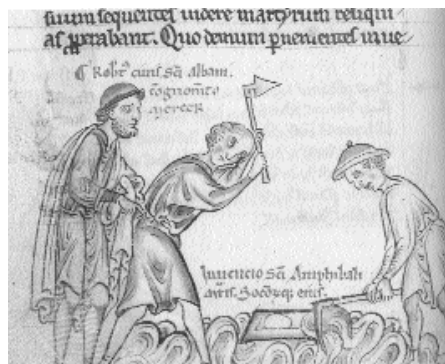 suum sequentes videre martyrum reliqui
as properabant. Quo demum pervenientes inve
Robt' civis sci Albani.
cognomto
mercer
Invencio sci Amphibali
mris. Socorq; eius.